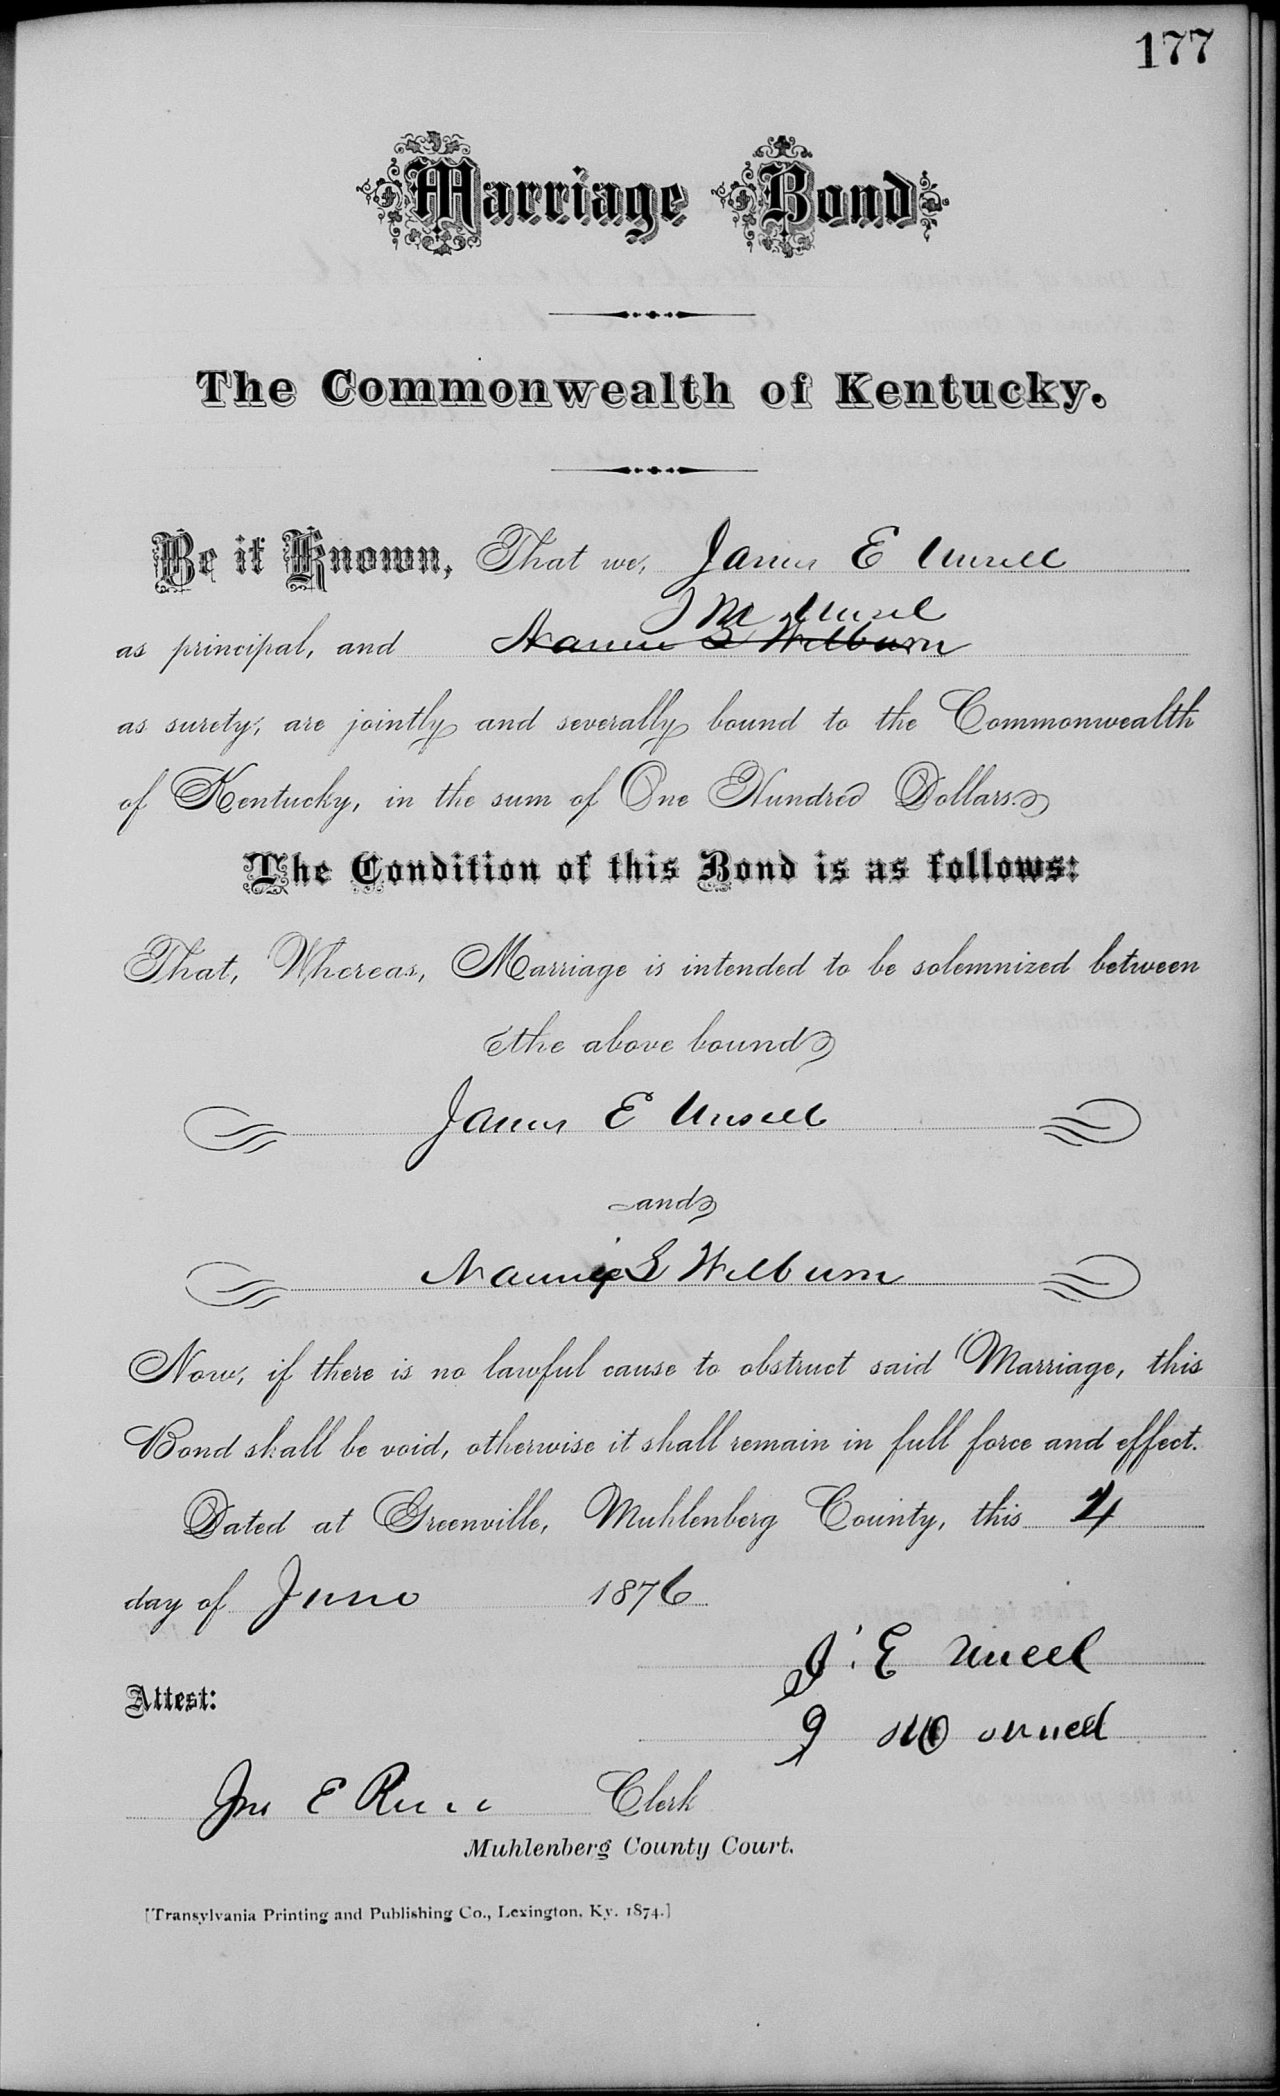 177
Marriage Bond
The Commonwealth of Kentucky.
Be it Known, That we, James E Unsell
J M Unsel
as principal, and Nannie S Wilburn
as surety, are jointly and severally bound to the Commonwealth
of Kentucky, in the sum of One Hundred Dollars.
The Condition of this Bond is as follows:
That, Whereas, Marriage is intended to be solemnized between
the above bound
James E Unsell
and
Nannie S Wilburn
Now, if there is no lawful cause to obstruct said Marriage, this
Bond shall be void, otherwise it shall remain in full force and effect.
Dated at Greenville, Muhlenberg County, this 4
day of June 1876
J. E Unsell
Attest:
J M Unsell
Jno E Reno Clerk
Muhlenberg County Court.
[Transylvania Printing and Publishing Co., Lexington, Ky. 1874.]